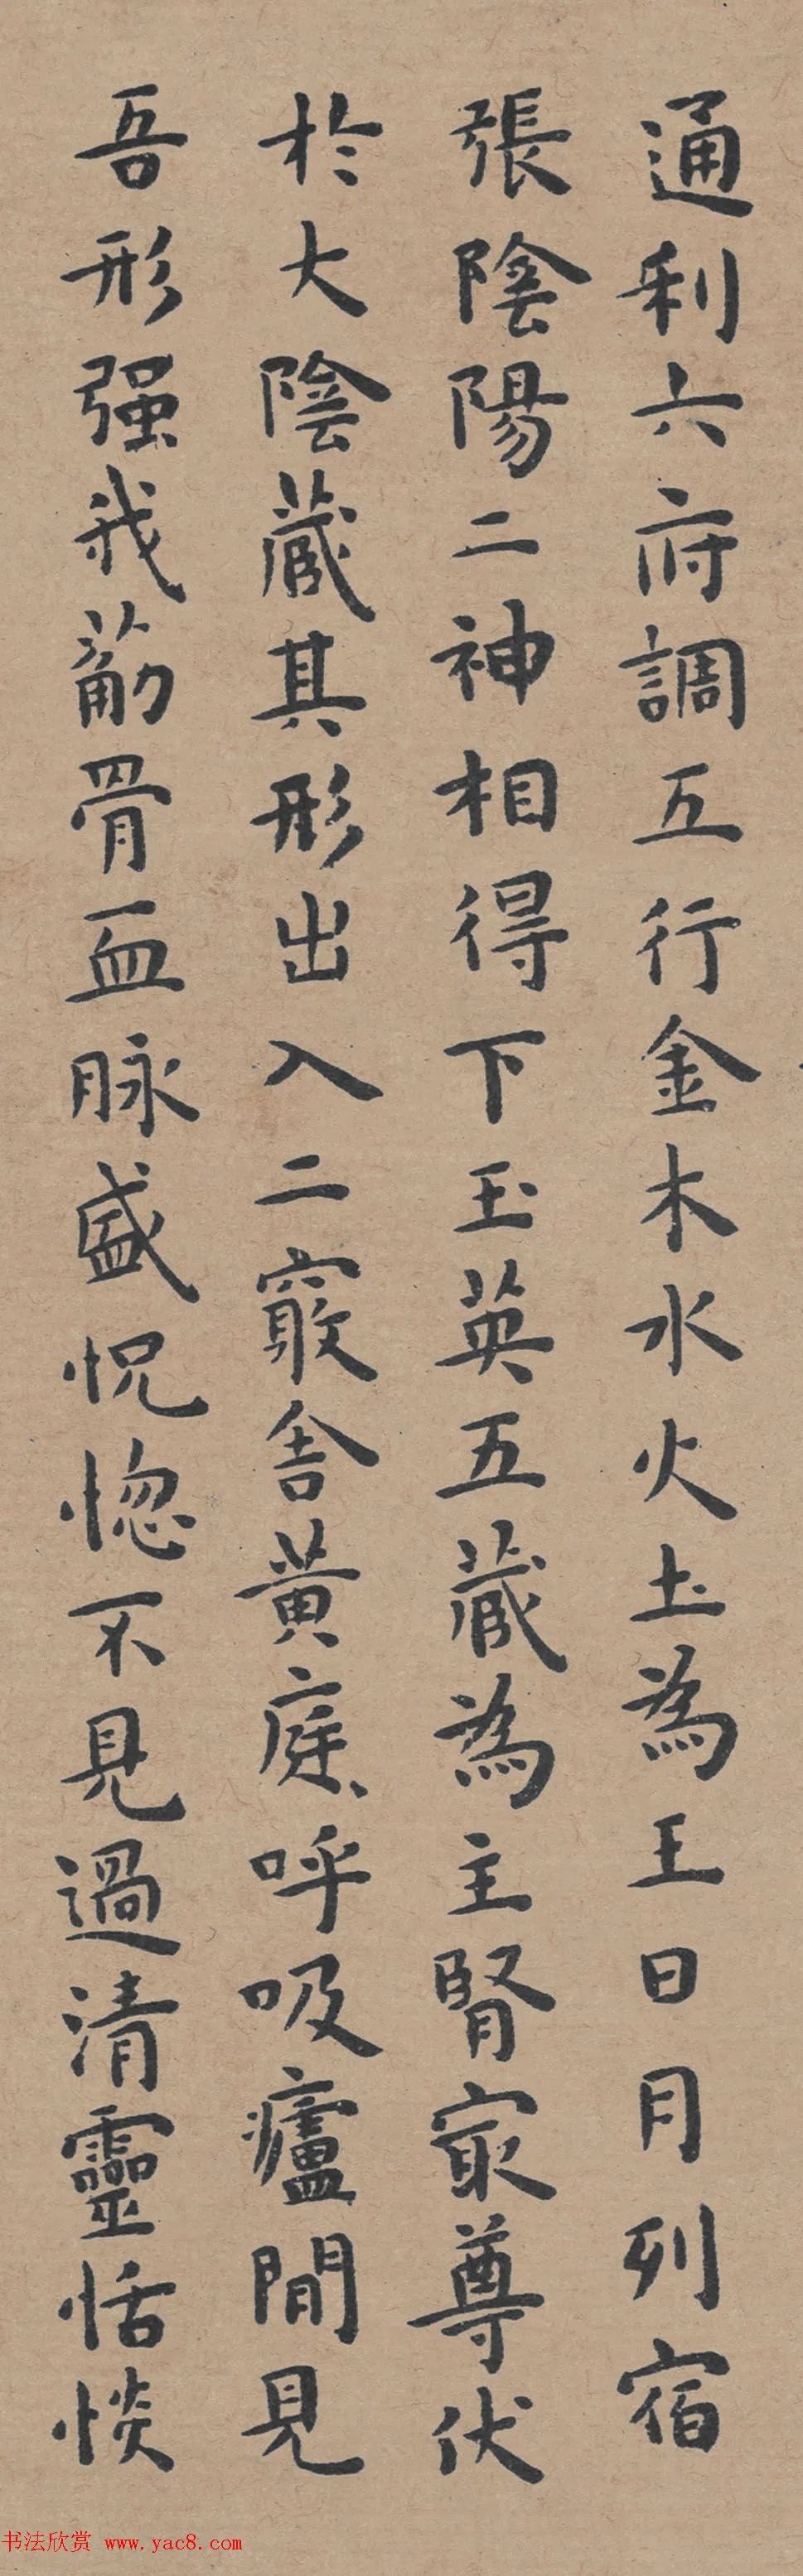 通利六府調五行金木水火土為王日月列宿
張陰陽二神相得下玉英五藏為主腎㝡尊伏
於大陰藏其形出入二竅舍黃庭呼吸廬間見
吾形强我筋骨血脉盛怳惚不見過清靈恬惔
书法欣赏 www.yac8.com